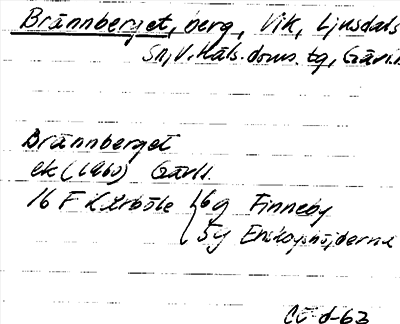 Brännberget, berg, Vik, Ljusdals
sn, V. Häls. doms. tg, Gävl.
Brännberget
ek (1960) Gävl.
16 F Kårböle 6g Finneby
5g Enskogshöjderna
d-63